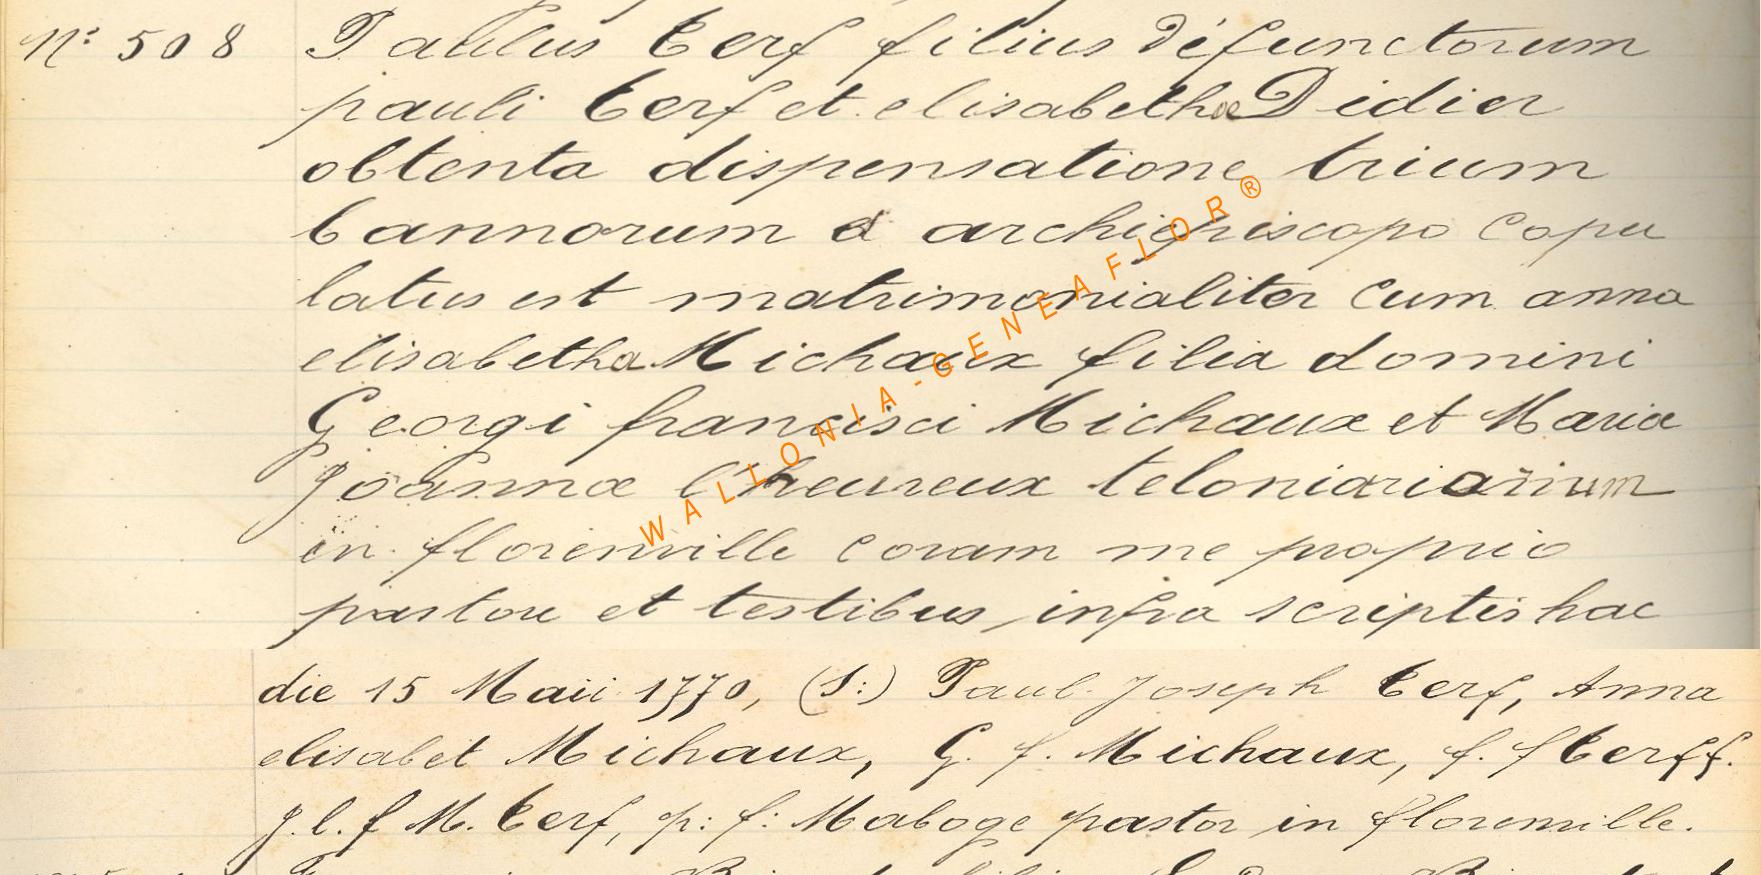 N° 508 Paulus Cerf filius défunctorum
pauli Cerf et elisabethæ Didier
obtenta dispensatione trium
bannorum a archiepiscopo copu
latus est matrimonialiter cum anna
elisabetha Michaux filia domini
Georgi francisci Michaux et Mariæ
Joannæ l'heureux teloniariorum
in florenville coram me proprio
pastore et testibus infra scriptis hac
die 15 Maii 1770, (S:) Paul Joseph Cerf, Anna
elisabet Michaux, G. f. Michaux, f. f Cerff.
J. l. f M. Cerf, p: f: Maboge pastor in florenville.
WALLONIA-GENEAFLOR®